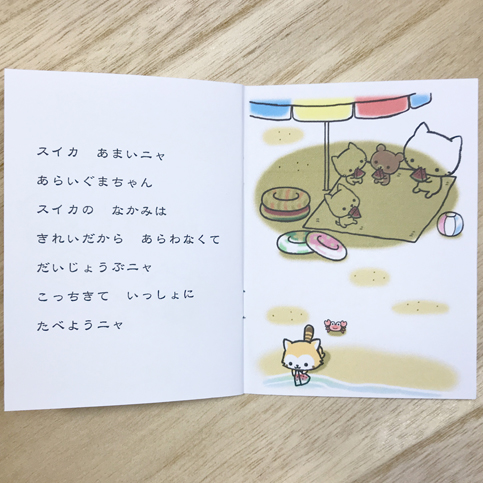 スイカ　あまいニャ
あらいぐまちゃん
スイカの　なかみは
きれいだから　あらわなくて
だいじょうぶニャ
こっちきて　いっしょに
たべようニャ